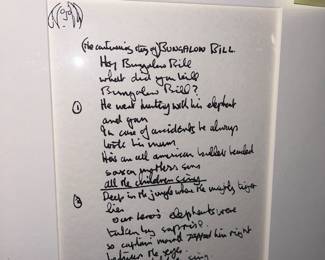 (The continuing story of) BUNGALOW BILL.
Hey Bungalow Bill
what did you kill
Bungalow Bill?
① He went hunting with his elephant
and gun
In case of accidents he always
took his mum
He's an all american bullet headed
saxon mothers son
all the children sing
② Deep in the jungle where the mighty tiger
lies
our hero's elephants were
taken by surprise.
so captain marvel zapped him right
between the eyes